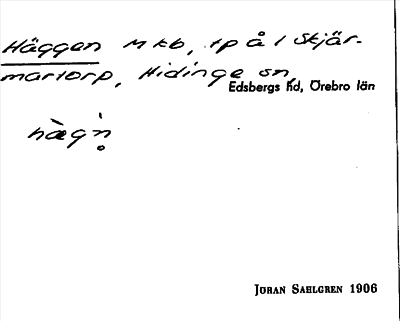 Häggen Mkb, tp å l Skjär-
martorp, Hidinge sn,
Edsbergs hd, Örebro län
hæ̀gǹ̥
Jöran Sahlgren 1906